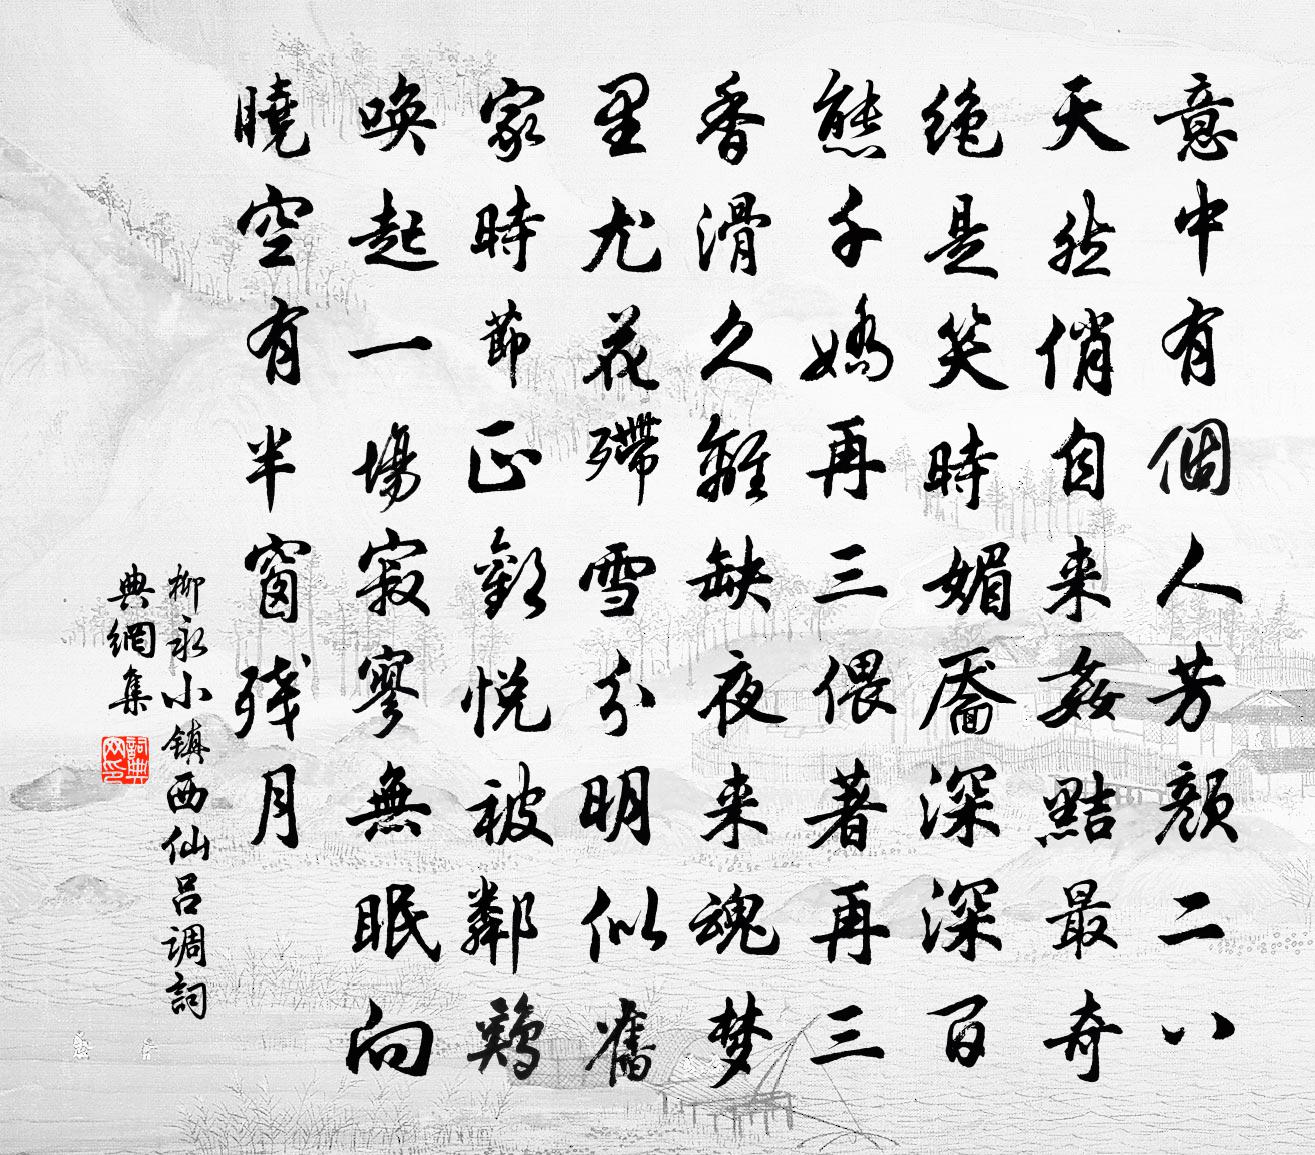 意中有個人芳顏二八
天然俏自来奸黠最奇
絶是笑時媚靨深深百
態千嬌再三偎著再三
香滑久離缺夜来魂梦
里尤花殢雪分明似舊
家時節正歡悅被鄰鷄
喚起一場寂寥無眠向
曉空有半窗残月
柳永小鎮西仙吕調詞
典網集